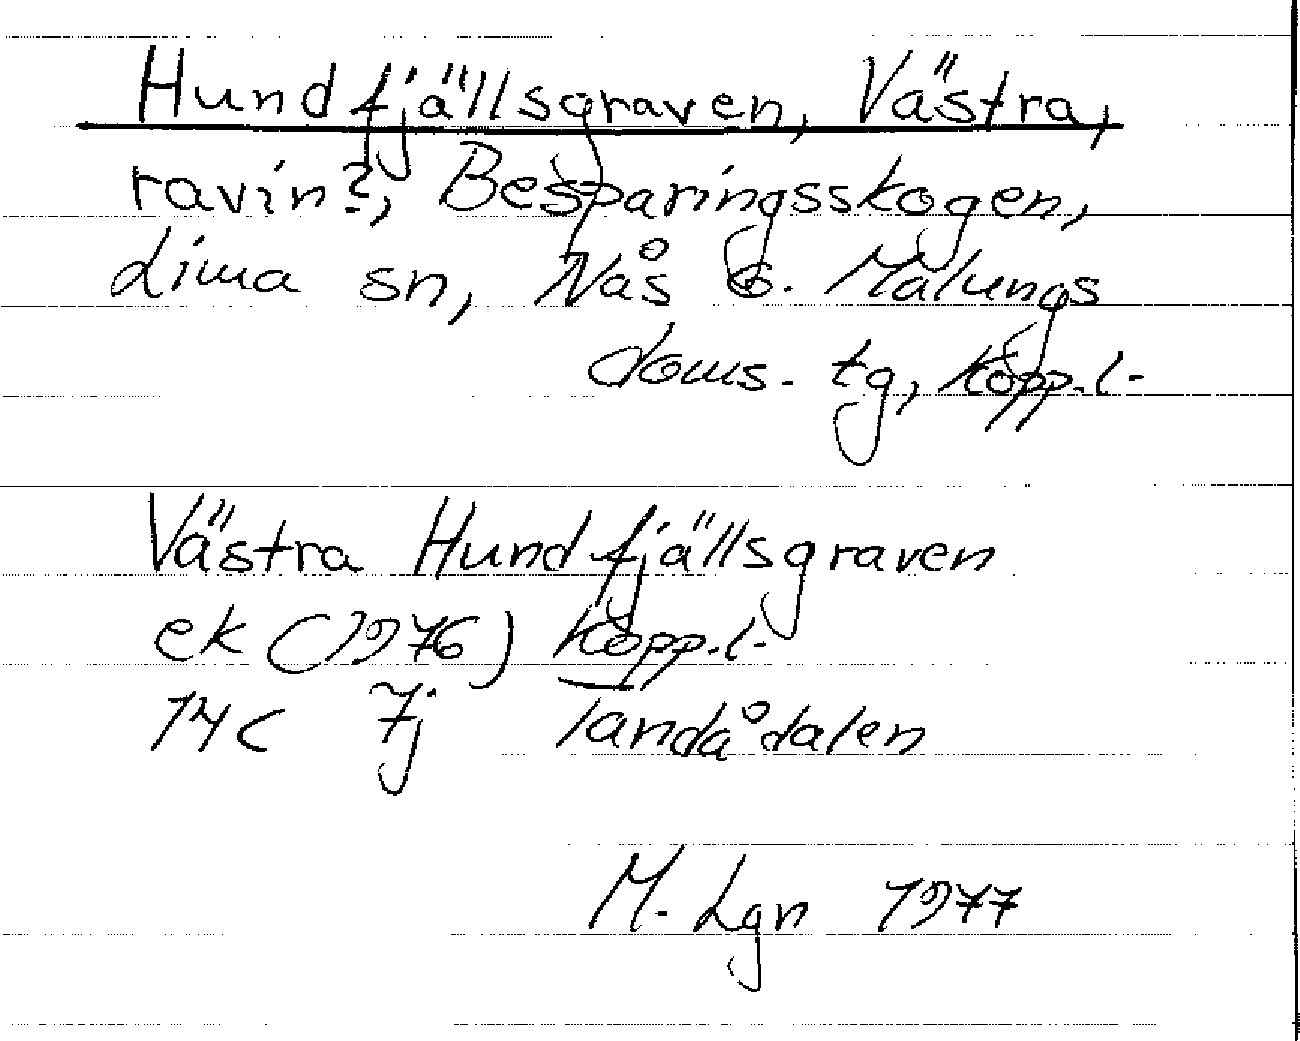 Hundfjällsgraven, Västra,
ravin?, Besparingsskogen,
Lima sn, Nås o. Malungs
doms. tg, Kopp.l.
Västra Hundfjällsgraven
ek (1976) Kopp.l.
14C 7j Tandådalen
M. Lgn 1977